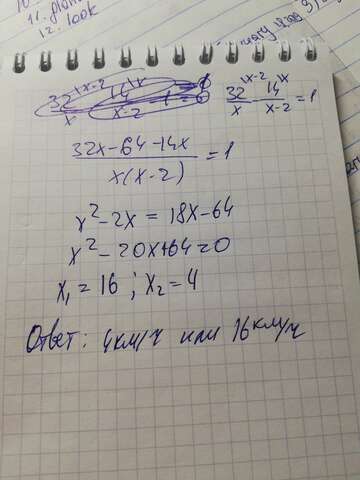 11. phone
12. look
32/x - 14/(x-2) = 1
(32x-64-14x)/(x(x-2)) = 1
x²-2x = 18x-64
x²-20x+64=0
x₁ = 16 ; x₂ = 4
Ответ: 4км/ч или 16км/ч